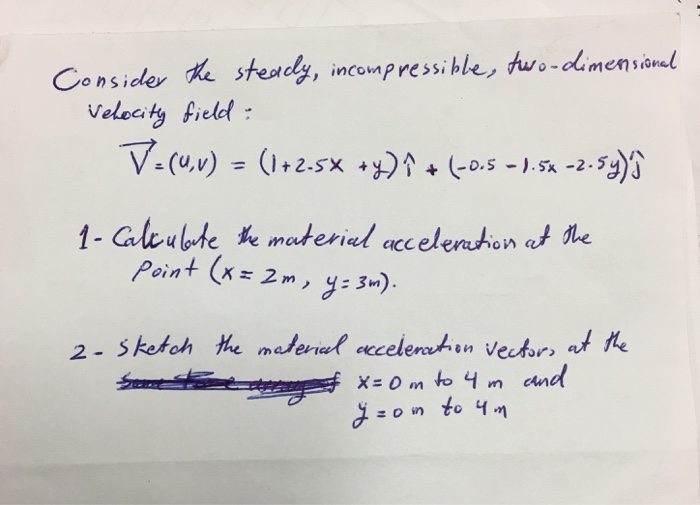 Consider the steady, incompressible, two-dimensional
velocity field :
V = (u,v) = (1+2.5x +y) î + (-0.5 - 1.5x -2.5y) ĵ
1- Calculate the material acceleration at the
Point (x = 2m, y = 3m).
2 - Sketch the material acceleration vectors at the
x = 0 m to 4 m and
y = 0 m to 4 m